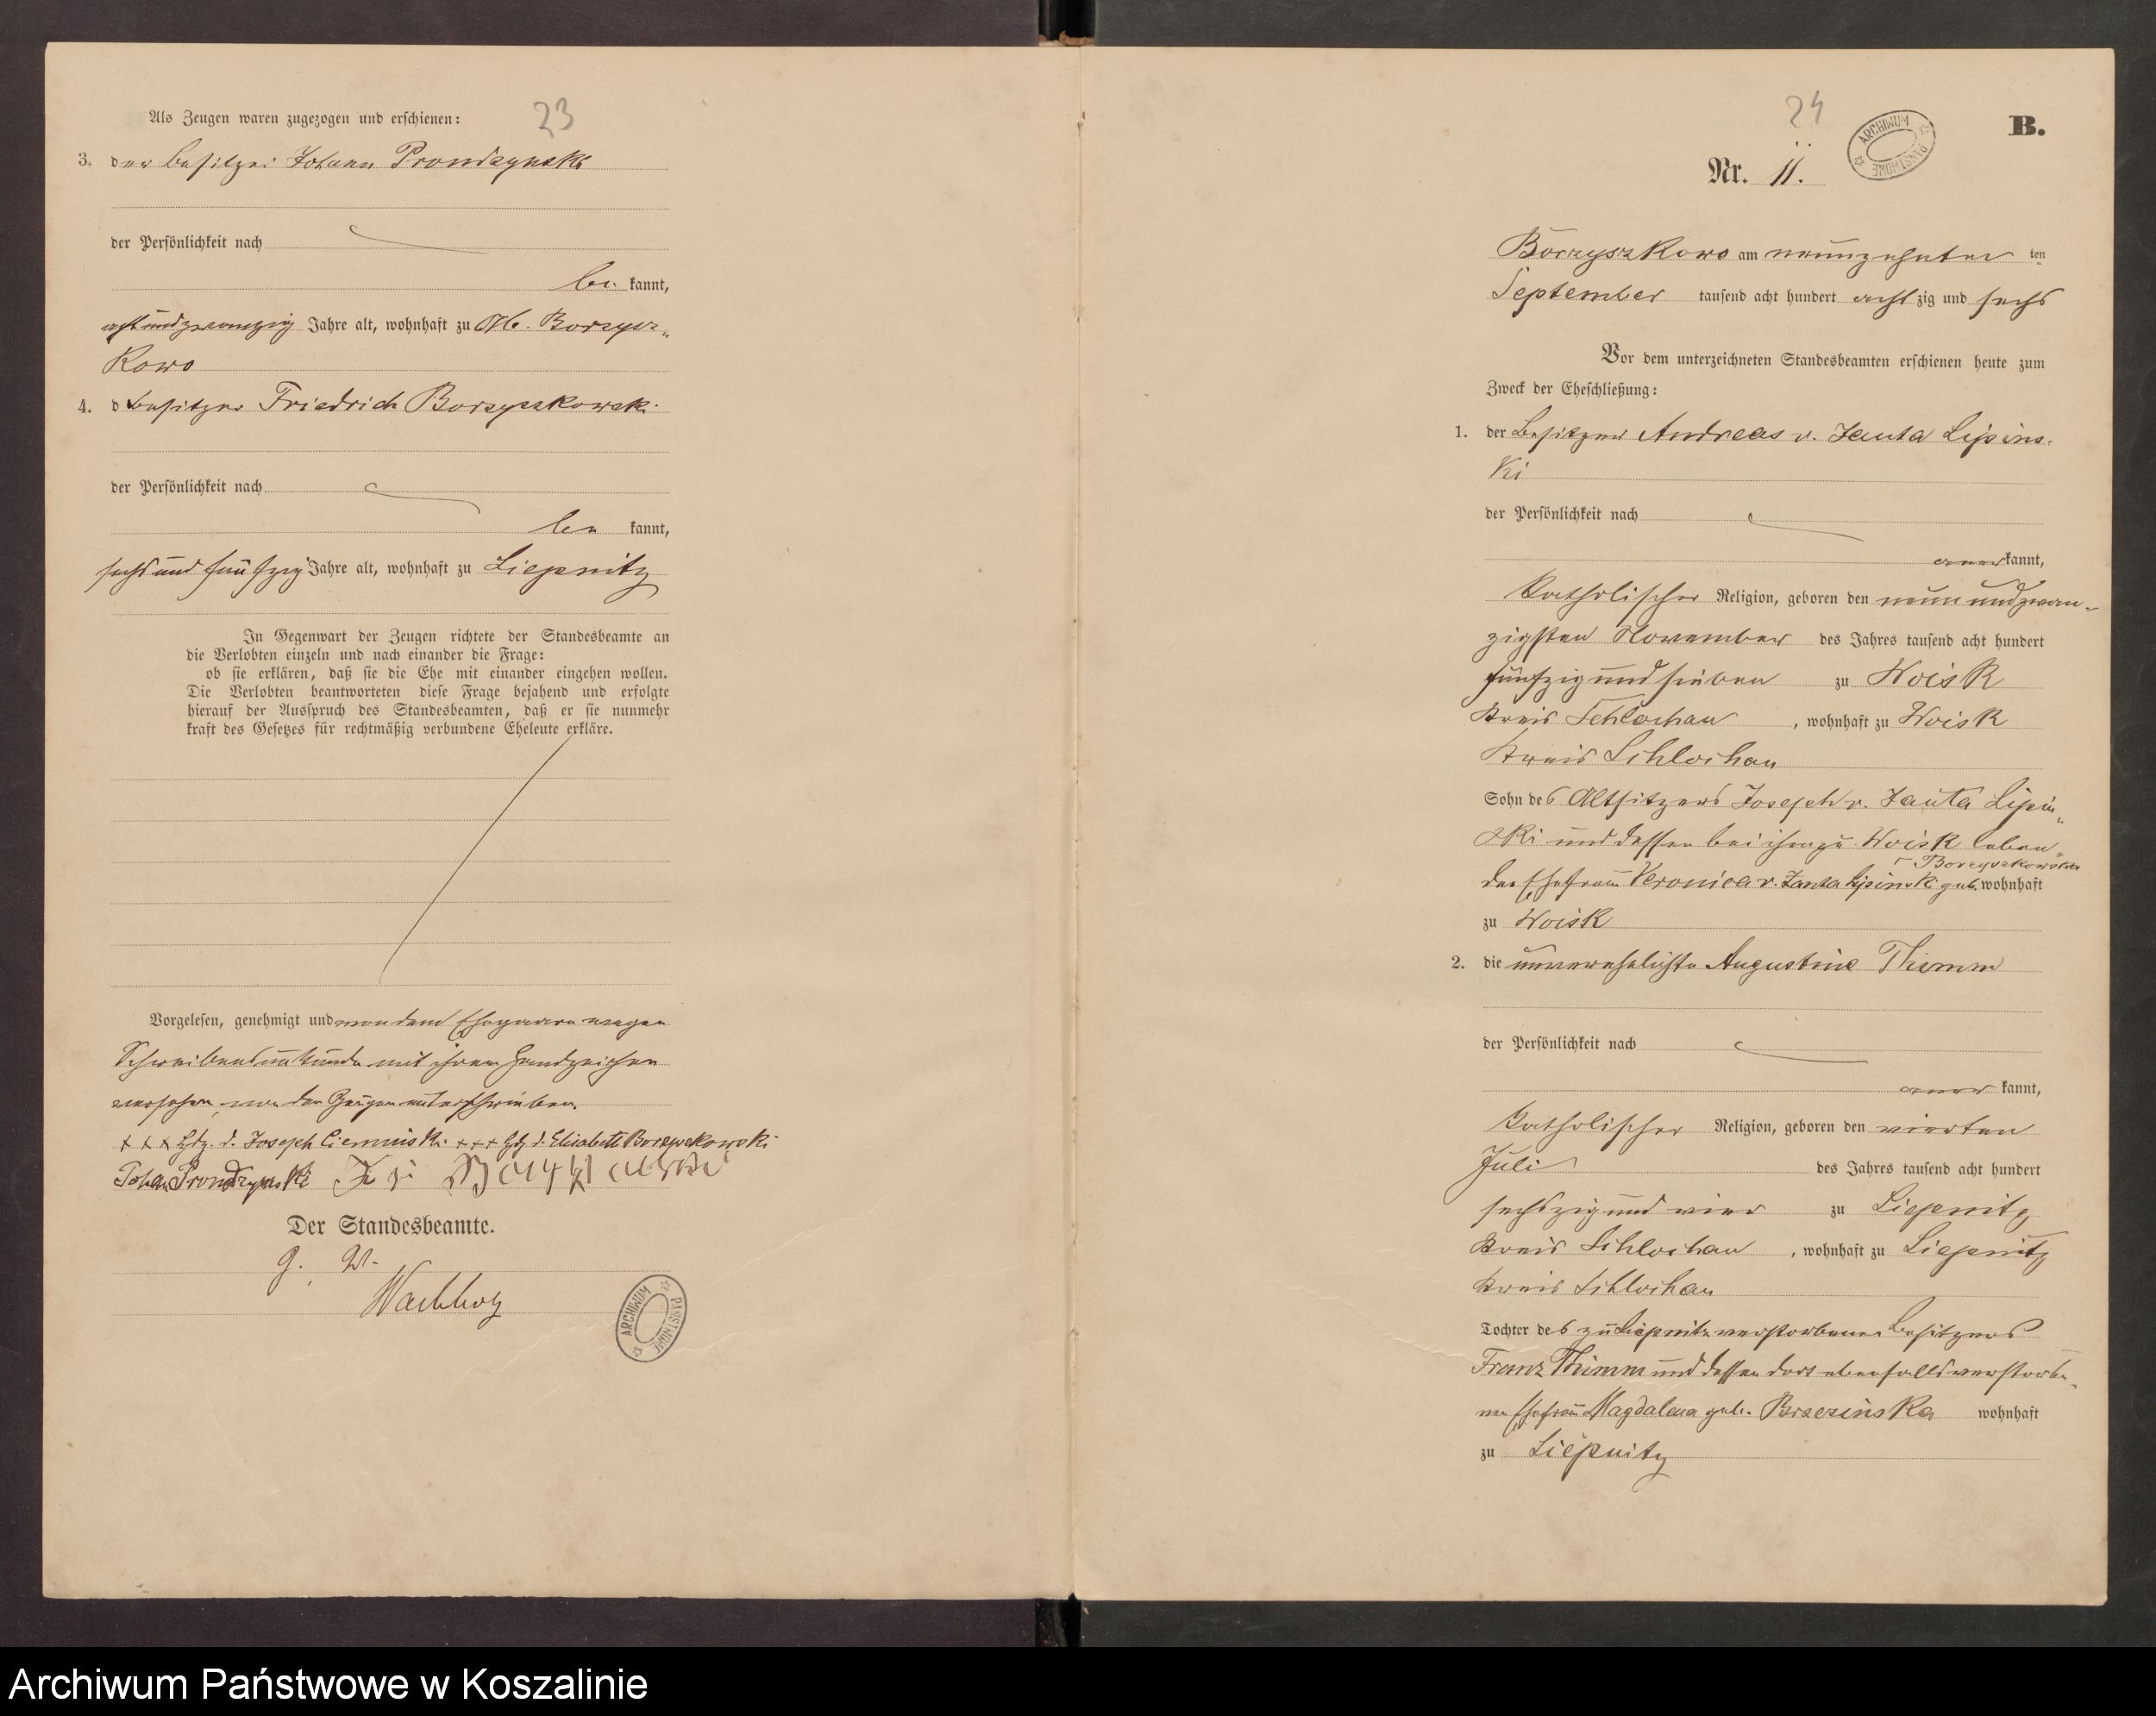 23
Als Zeugen waren zugezogen und erschienen:
3. der Besitzer Johann Prondzynski
der Persönlichkeit nach
be kannt,
acht und zwanzig Jahre alt, wohnhaft zu Abb. Borzysz-
kowo
4. d Besitzer Friedrich Borzyszkowski
der Persönlichkeit nach
be kannt,
sechs und fünfzig Jahre alt, wohnhaft zu Liepnitz
In Gegenwart der Zeugen richtete der Standesbeamte an
die Verlobten einzeln und nach einander die Frage:
ob sie erklären, daß sie die Ehe mit einander eingehen wollen.
Die Verlobten beantworteten diese Frage bejahend und erfolgte
hierauf der Ausspruch des Standesbeamten, daß er sie nunmehr
kraft des Gesetzes für rechtmäßig verbundene Eheleute erkläre.
Vorgelesen, genehmigt und von dem Ehepaare wegen
Schreibensunkunde mit ihrem Handzeichen
versehen, von den Zeugen unterschrieben.
+++ Hdz. d. Joseph Ciemniski +++ Hdz d. Elisabeth Borzyskowski
Johan Prondzynski
Der Standesbeamte.
Wachholz
ARCHIWUM PAŃSTWOWE
24
ARCHIWUM PAŃSTWOWE
B.
Nr. 11.
Borzyszkowo am neunzehnten ten
September tausend acht hundert acht zig und sechs
Vor dem unterzeichneten Standesbeamten erschienen heute zum
Zweck der Eheschließung:
1. der Besitzer Andreas v. Janta Lipins-
ki
der Persönlichkeit nach
aner kannt,
katholischer Religion, geboren den neun und zwan-
zigsten November des Jahres tausend acht hundert
fünfzig und sieben zu Woisk
Kreis Schlochau, wohnhaft zu Woisk
Kreis Schlochau
Sohn des Altsitzers Joseph v. Janta Lipin-
ski und dessen bei ihm zu Woisk leben-
Borzyszkowska
den Ehefrau Veronica v. Janta Lipinski geb. wohnhaft
zu Woisk
2. die unverehelichte Augustine Thimm
der Persönlichkeit nach
aner kannt,
katholischer Religion, geboren den vierten
Juli des Jahres tausend acht hundert
sechszig und vier zu Liepnitz
Kreis Schlochau, wohnhaft zu Liepnitz
Kreis Schlochau
Tochter des zu Liepnitz verstorbenen Besitzers
Franz Thimm und dessen dort ebenfalls verstorbe-
nen Ehefrau Magdalena geb. Brzezinska wohnhaft
zu Liepnitz
Archiwum Państwowe w Koszalinie